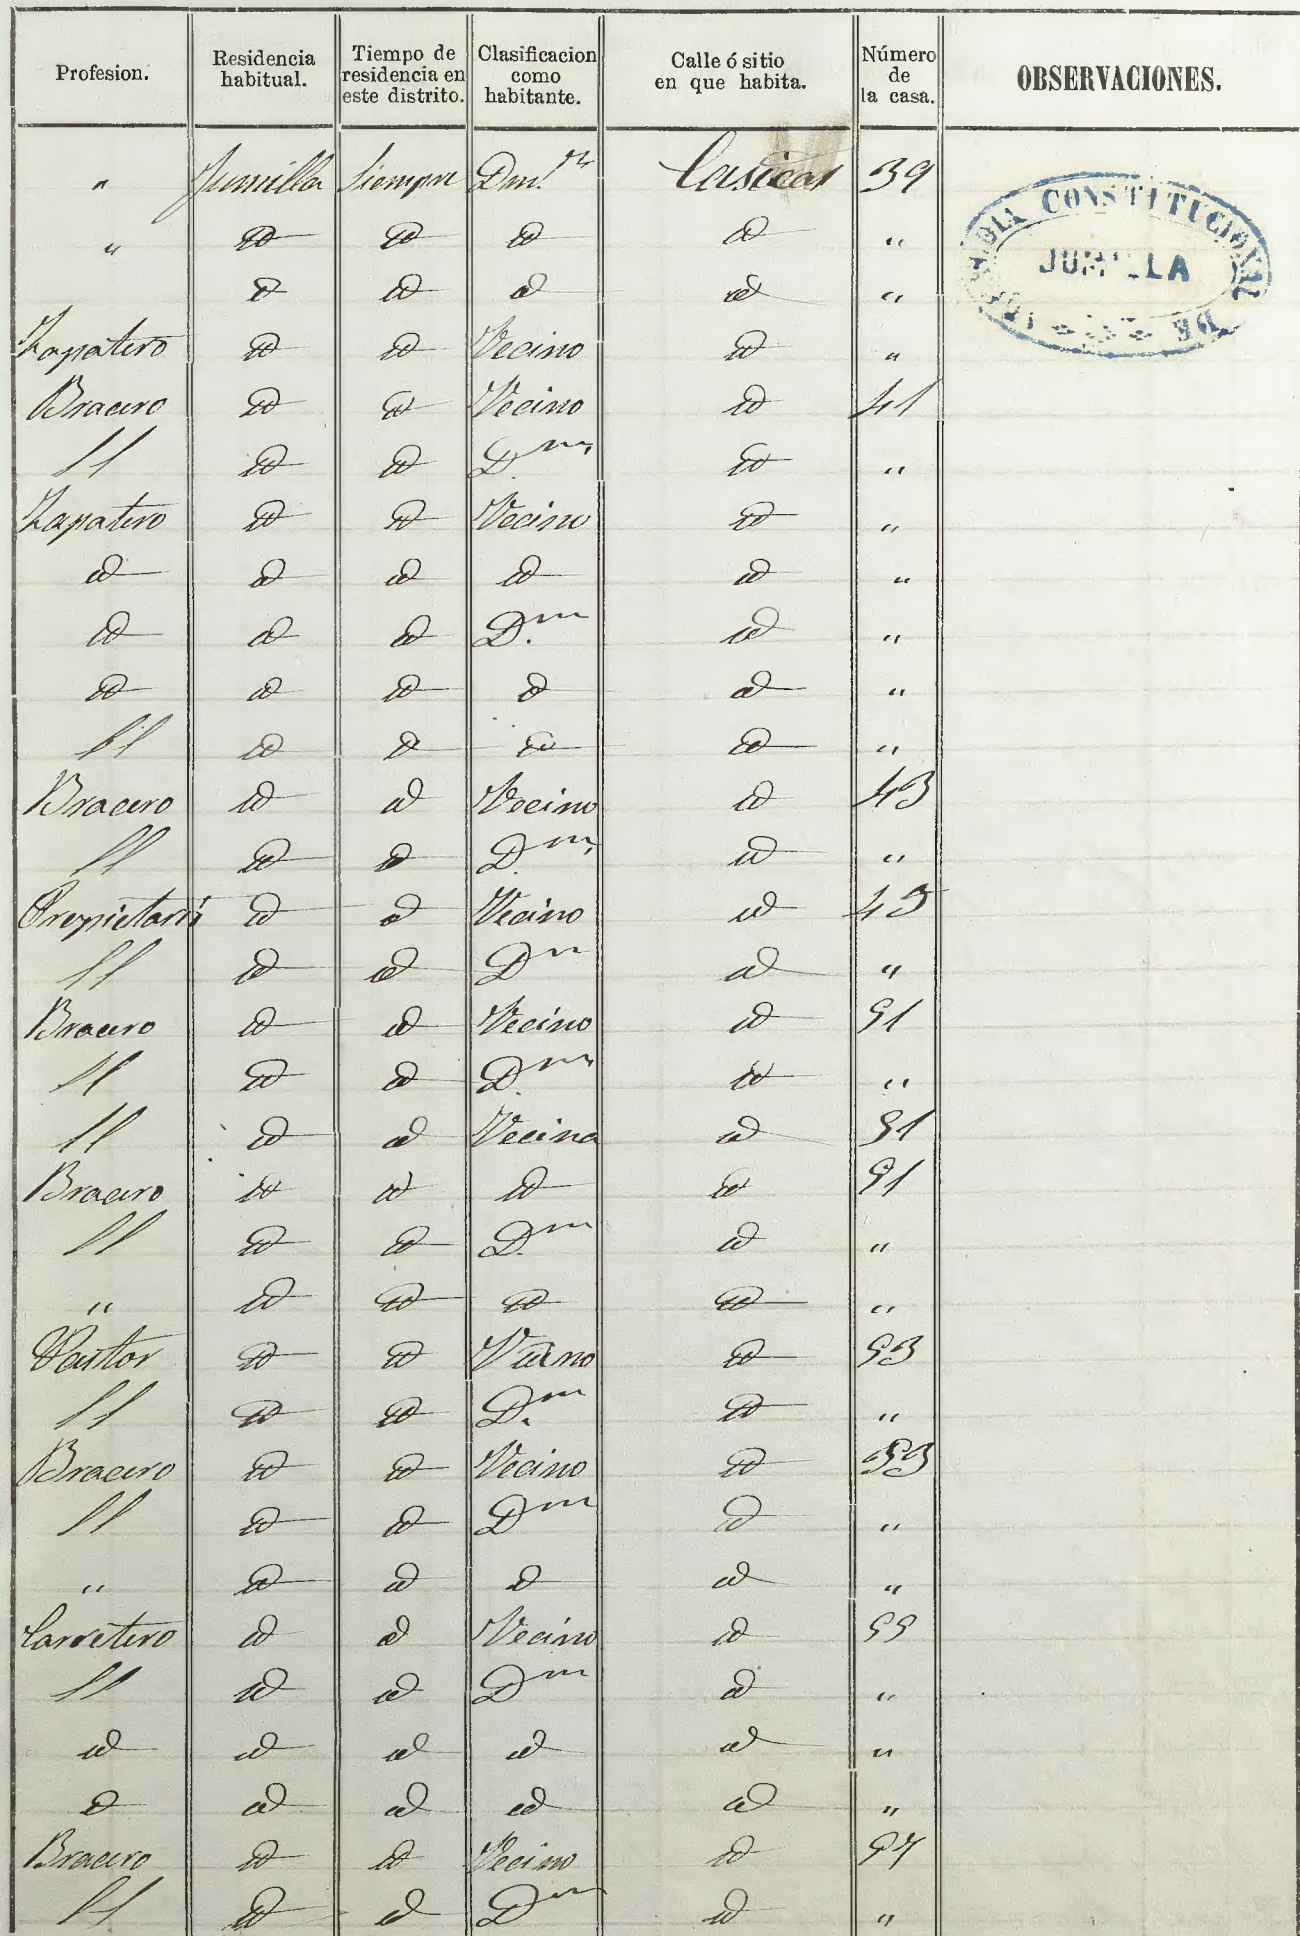 Profesion. Residencia habitual. Tiempo de residencia en este distrito. Clasificacion como habitante. Calle ó sitio en que habita. Número de la casa. OBSERVACIONES.
" Jumilla Siempre Dm.º Casicas 39
" id id id id "
id id id id "
Zapatero id id Vecino id "
Bracero id id Vecino id 41
" id id D.m id "
Zapatero id id Vecino id "
id id id id id "
id id id D.m id "
id id id id id "
" id id id id "
Bracero id id Vecino id 43
" id id D.m id "
Propietario id id Vecino id 45
" id id Dm id "
Bracero id id Vecino id 51
" id id D.m id "
" id id Vecina id 51
Bracero id id id id 51
" id id D.m id "
" id id id id "
Pastor id id Vecino id 53
" id id D.m id "
Bracero id id Vecino id 53
" id id Dm id "
" id id id id "
Carretero id id Vecino id 55
" id id Dm id "
id id id id id "
id id id id id "
Bracero id id Vecino id 57
" id id Dm id "
CONSTITUCIONAL DE
JUMILLA